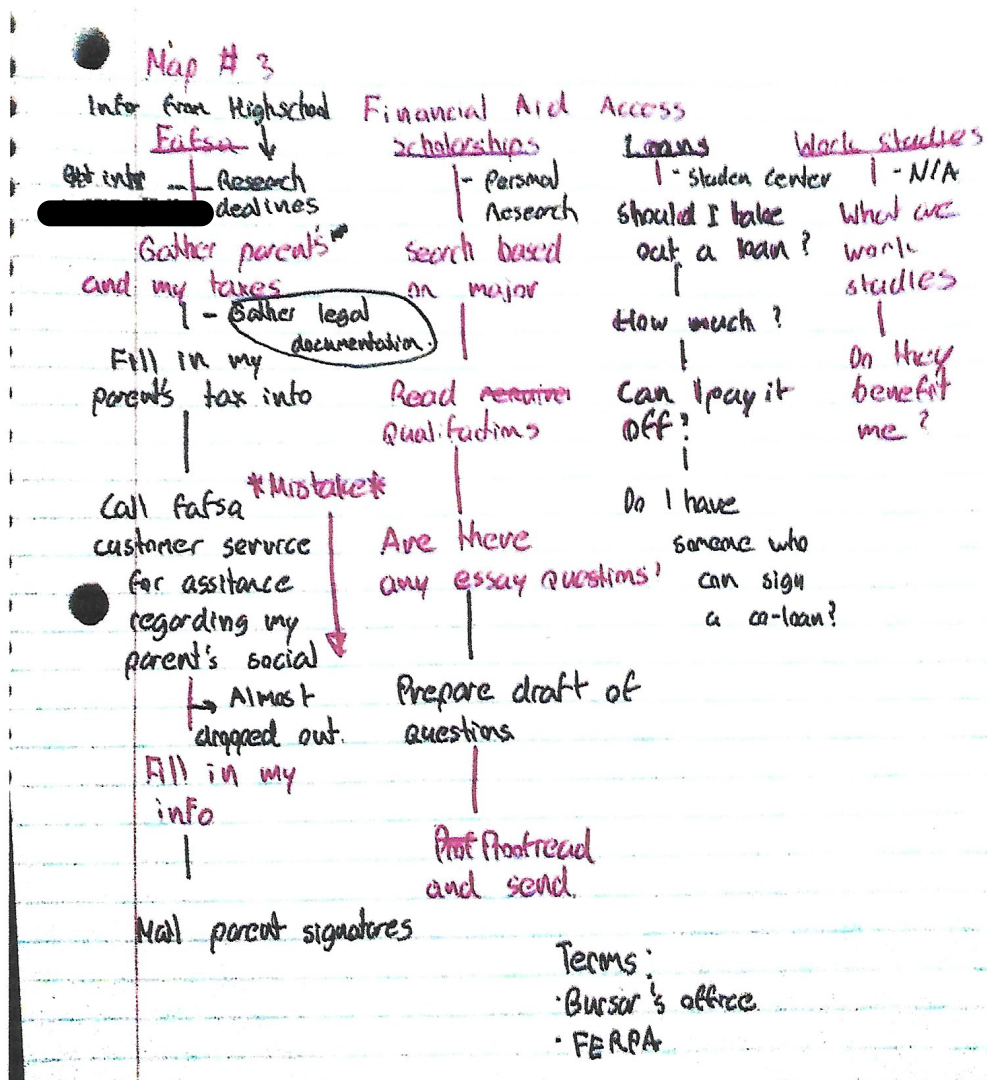 Map # 3
Info from Highschool
Financial Aid Access
Fafsa
Get info
Research
dealines
Gather parent's
and my taxes
- Gather legal
documentation.
Fill in my
parent's tax info
*Mistake*
Call fafsa
customer service
for assitance
regarding my
parent's social
Almost
dropped out.
Fill in my
info
Mail parent signatures
Scholarships
- Personal
Research
search based
on major
Read
Qualifactions
Are there
any essay questions?
Prepare draft of
questions
Prof Proofread
and send.
Loans
- Studen center
should I take
out a loan?
How much?
Can I pay it
off?
Do I have
someone who
can sign
a co-loan?
Work Studies
- N/A
What are
work
studies
Do they
benefit
me?
Terms:
· Bursar's office
· FERPA